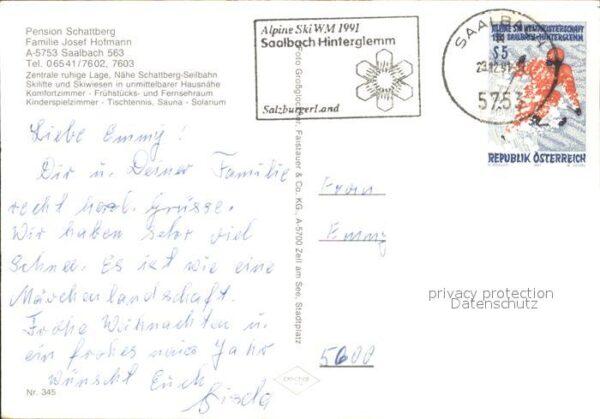 Pension Schattberg
Familie Josef Hofmann
A-5753 Saalbach 563
Tel. 06541/7602, 7603
Zentrale ruhige Lage, Nähe Schattberg-Seilbahn
Skilifte und Skiwiesen in unmittelbarer Hausnähe
Komfortzimmer - Frühstücks- und Fernsehraum
Kinderspielzimmer - Tischtennis, Sauna - Solarium
Alpine Ski WM 1991
Saalbach Hinterglemm
SalzburgerLand
SAALBACH
5753
ALPINE SKI WELTMEISTERSCHAFT
SAALBACH-HINTERGLEMM
S 5
REPUBLIK ÖSTERREICH
Liebe Emmy!
Dir u. Deiner Familie
recht herzl. Grüsse.
Wir haben sehr viel
Schnee. Es ist wie eine
Märchenlandschaft.
Frohe Weihnachten u.
ein frohes neues Jahr
wünscht Euch
Gisela
Nr. 345
Foto Großglockner, Faistauer & Co. KG., A-5700 Zell am See, Stadtplatz
Frau
Emmy
5600
privacy protection
Datenschutz